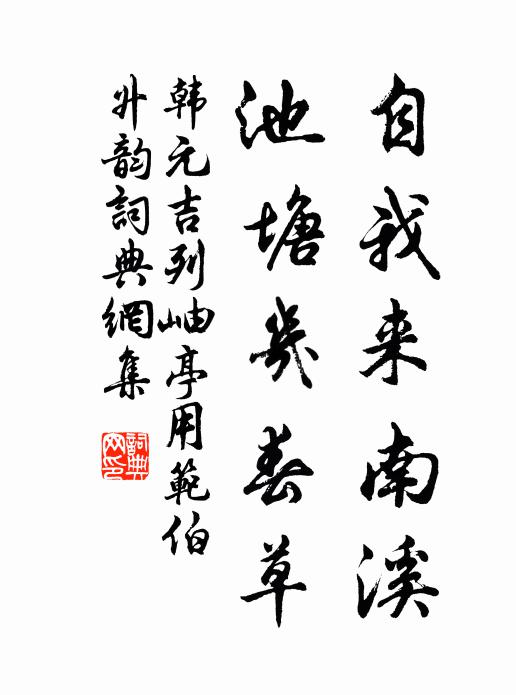 自我来南溪
池塘几春草
韩元吉列岫亭用範伯
升韵詞典網集
詞典网印